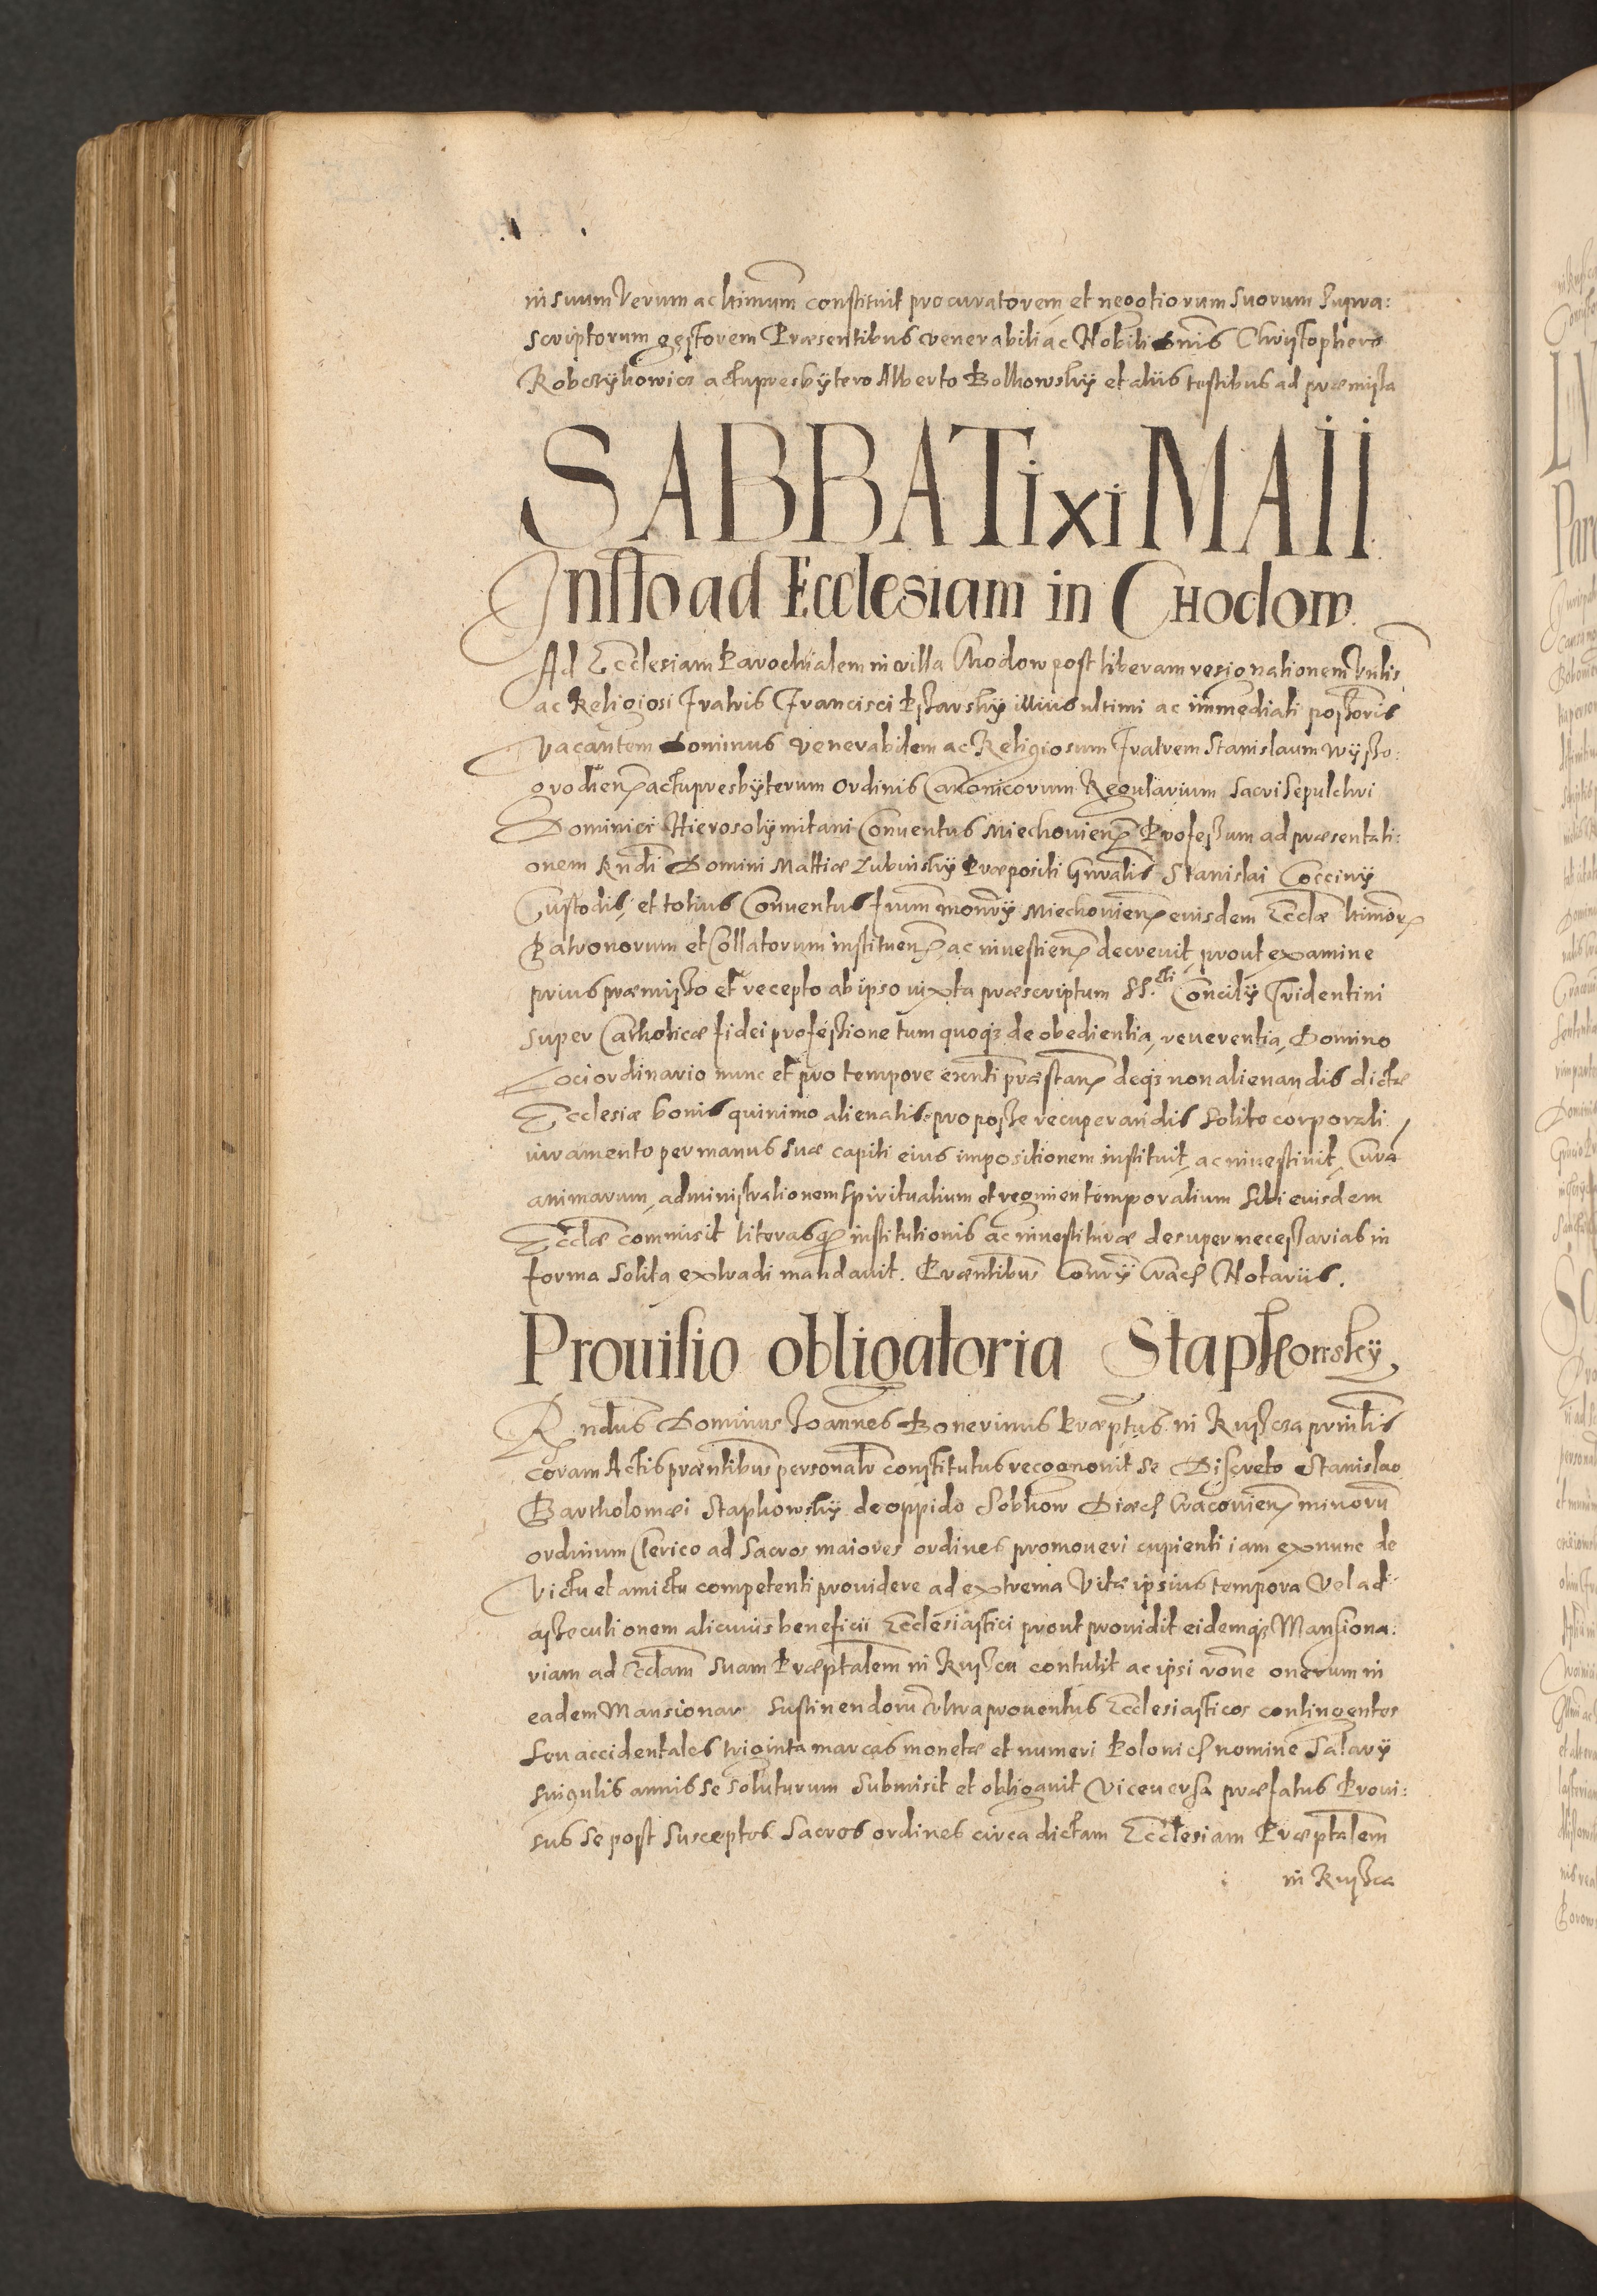 in suum verum ac ltimum constituit procuratorem et negotiorum suorum supra:
scriptorum gestorem Præsentibus venerabili ac Nobili Dnis Christophero
Robczykowicz actupresbytero Alberto Bolkowsky et aliis testibus ad præmissa
SABBATi xi MAII
Instto ad Ecclesiam in CHodow
Ad Ecclesiam Parochialem in villa Chodow post liberam resignationem Vnlis
ac Religiosi Fratris Francisci Pstarsky illius ultimi ac immediati possoris
vacantem Dominus venerabilem ac Religiosum Fratrem Stanislaum Wysso:
grodien actupresbyterum ordinis Canonicorum Regularium Sacri Sepulchri
Dominici Hierosolymitani Conventus Miechovien Professum ad præsentati:
onem Rndi Domini Mattiæ Lubinsky Præpositi Gnralis Stanislai Cocciny
Custodis, et totius Conventus frum monrij Miechovien eiusdem Eccliæ ltimor
Patronorum et Collatorum instituen ac investien decrevit prout examine
prius præmisso et recepto ab ipso iuxta præscriptum SS.cti Concilij Tridentini
super Catholicæ fidei professione tum quoq; de obedientia, reverentia, Domino
Loci ordinario nunc et pro tempore exnti præstan deq; non alienandis dictæ
Ecclesiæ bonis quinimo alienatis pro posse recuperandis solito corporali
iuramento per manus suæ capiti eius impositionem instituit, ac investivit, Curā
animarum, administrationem spiritualium et regimen temporalium sibi eiusdem
Eccliæ commisit literasq institutionis ac investituræ desuper necessarias in
forma solita extradi mandavit. Præntibus Conrij Crac Notariis.
Provisio obligatoria Stapkowsky,
Rndus Dominus Joannes Bonerinus Præptus in Ruszcza prinlis
coram Actis præntibus personalr constitutus recognovit se Discreto Stanislao
Bartholomæi Stapkowsky de oppido Sobkow Diæc Cracovien minorū
ordinum Clerico ad Sacros maiores ordines promoveri cupienti iam exnunc de
victu et amictu competenti providere ad extrema vitæ ipsius tempora vel ad
assecutionem alicuius beneficii Ecclesiastici prout providit eidemq; Mansiona:
riam ad Eccliam suam Præptalem in Ruszcza contulit ac ipsi rone onerum in
eadem Mansionar sustinendorū ultra proventus Ecclesiasticos contingentes
seu accidentales triginta marcas monetæ et numeri Polonic nomine Salarij
singulis annis se soluturum submisit et obligavit viceversa præfatus Provi:
sus se post susceptos sacros ordines circa dictam Ecclesiam Præptalem
in Ruszcza